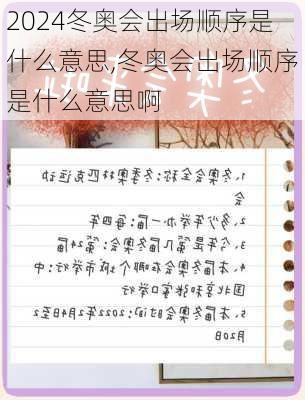 2024冬奥会出场顺序是
什么意思,冬奥会出场顺序
是什么意思啊
1、冬奥会全称:冬季奥林匹克运动
会
2、多少年举办一届:每四年
3、今年是第几届冬奥会:第24届
4、本届冬奥会在哪个城市举行:中
国北京和张家口举行
5、本届冬奥会时间:2022年2月4日至2
月20日